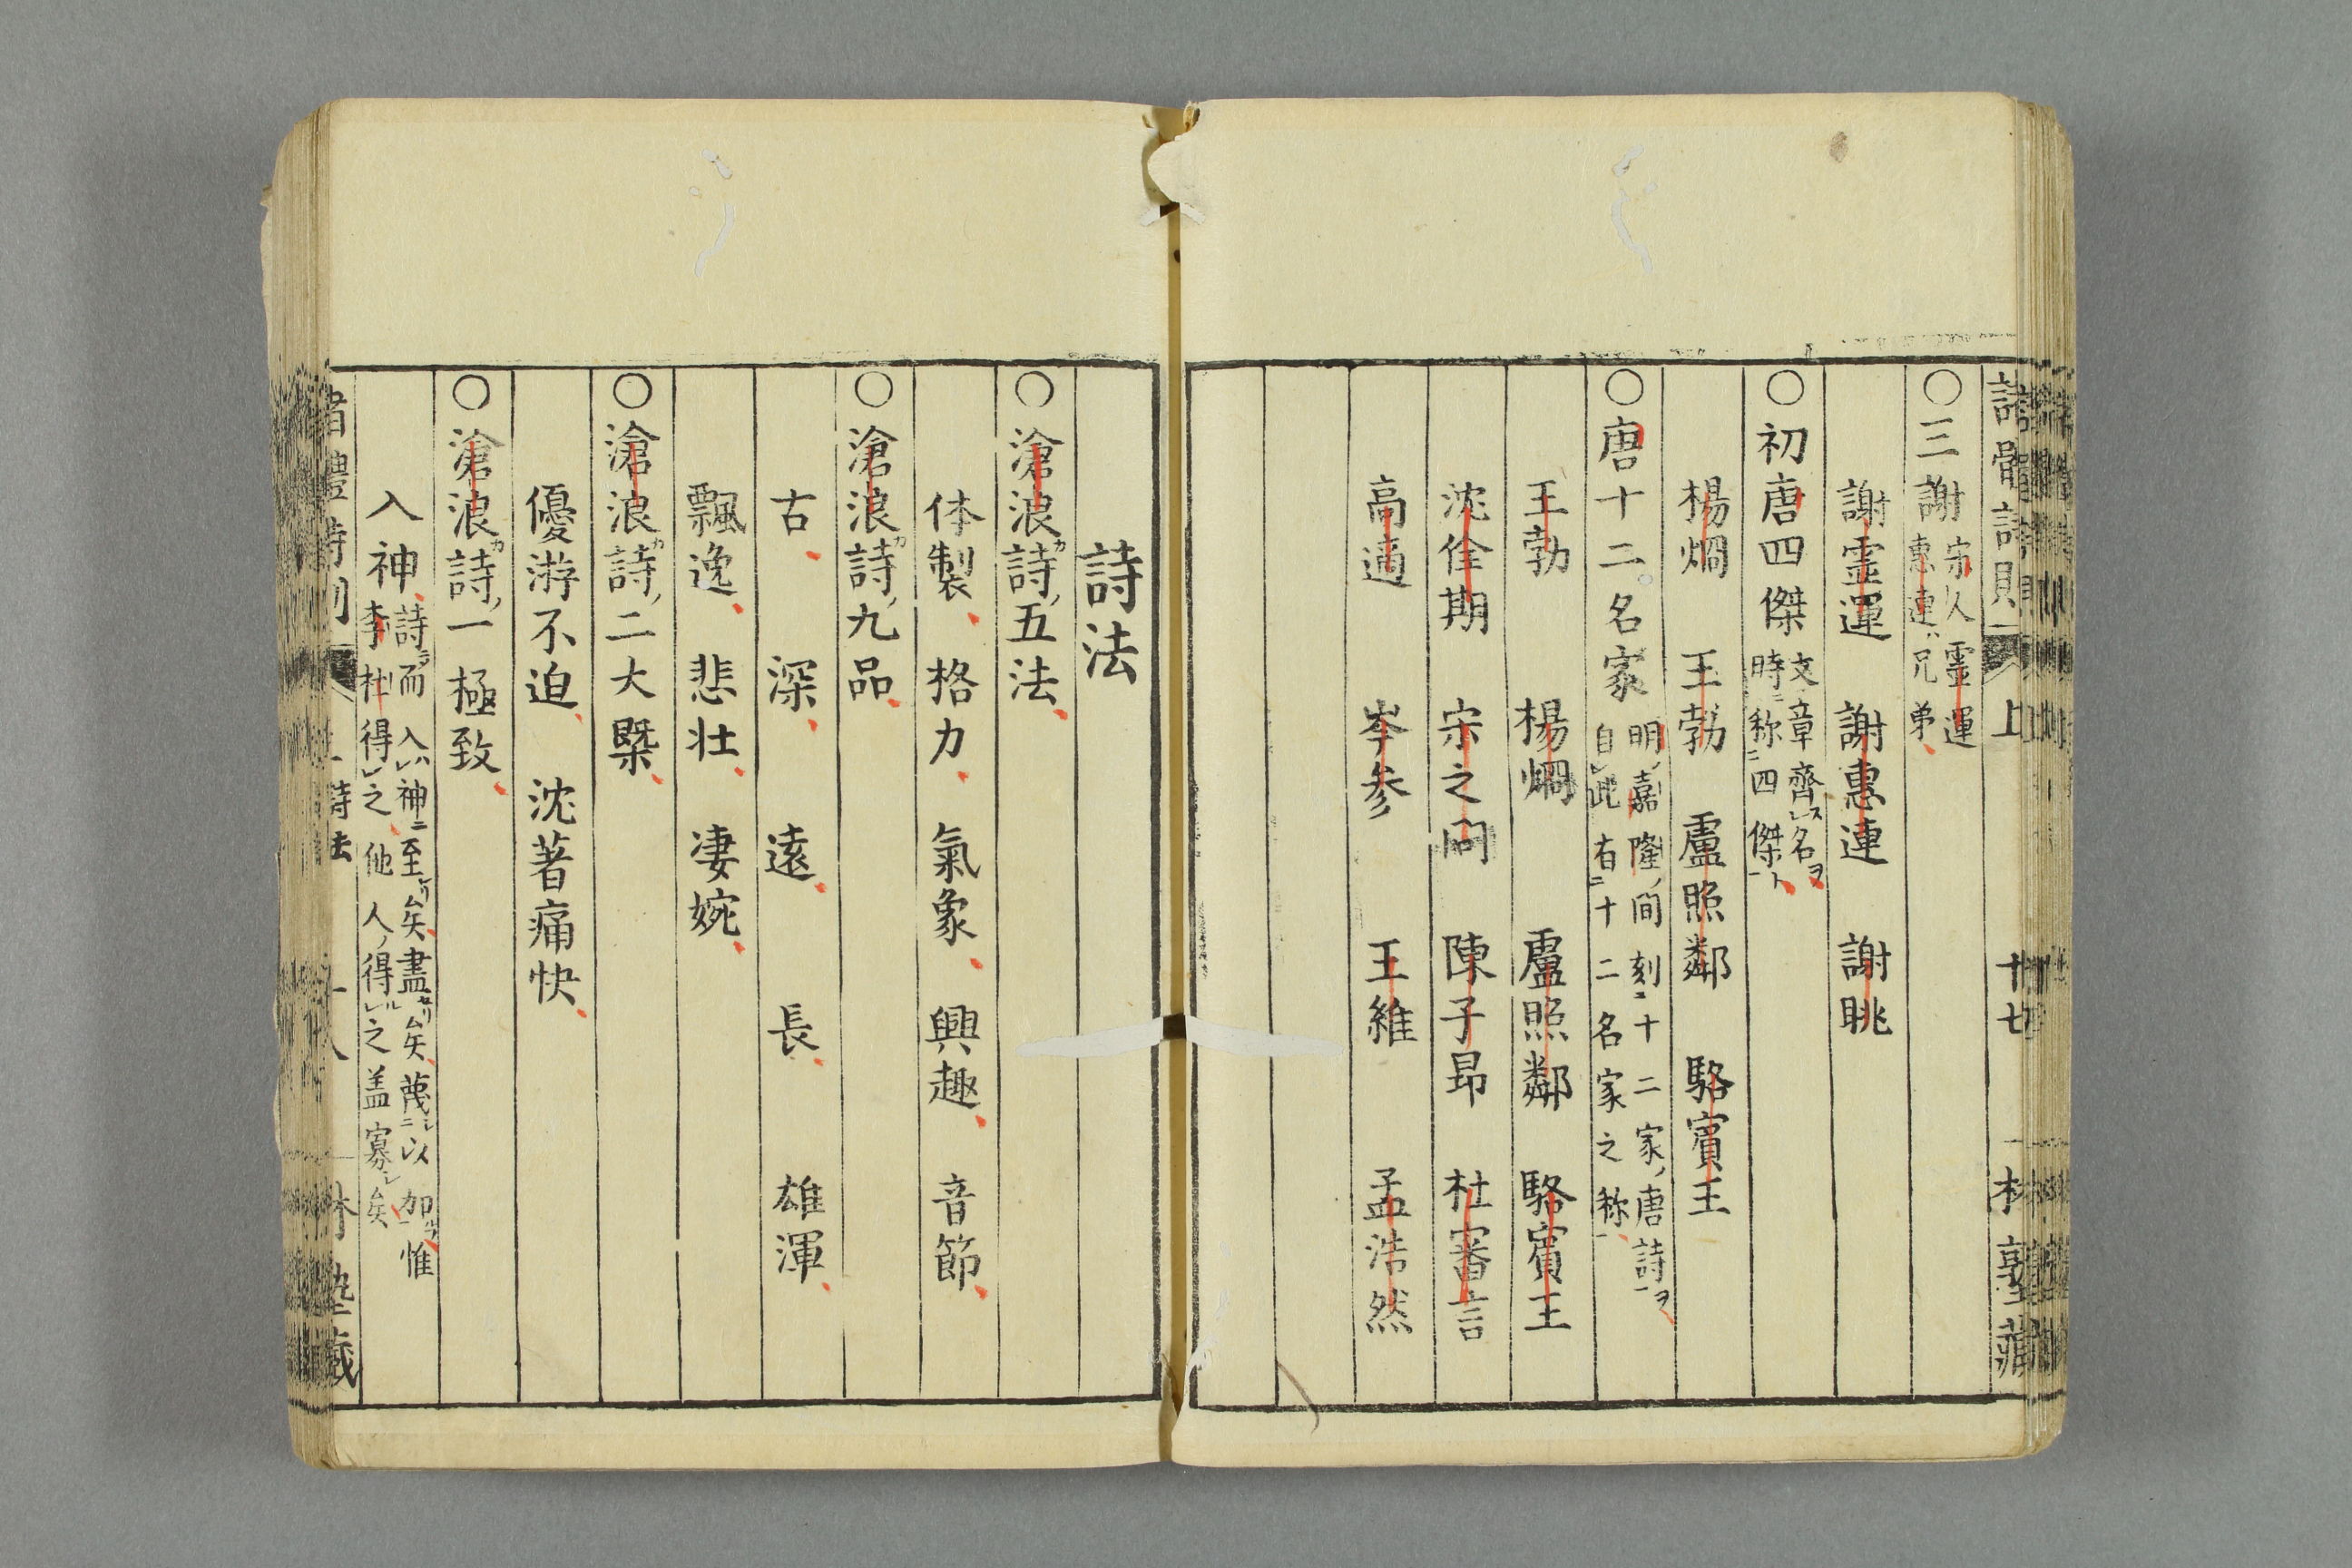 ○三謝宋人霊運
惠連ハ兄弟
謝霊運　謝惠連　謝眺
○初唐四傑文章齊スレ名ヲ
時ニ称ニ四傑ト一
楊烱　王勃　盧照鄰　駱賓王
○唐十二名家明ノ嘉隆ノ間刻ニ十二家ノ唐詩ヲ一
自レ此有ニ十二名家之称一
王勃　楊烱　盧照鄰　駱賓王
沈佺期　宋之問　陳子昂　杜審言
高適　岑参　王維　孟浩然
上　十七
詩法
○滄浪カ詩ノ五法
体製　格力　氣象　興趣　音節
○滄浪カ詩ノ九品
古　深　遠　長　雄渾
飄逸　悲壮　凄婉
○滄浪カ詩ノ二大槩
優游不迫　沈著痛快
○滄浪カ詩ノ一極致
入神詩ニ而入レハ神ニ至レリ矣盡セリ矣蔑シニ以加フル一惟
李杜得レ之他人ノ得ルレ之盖寡シ矣
詩法